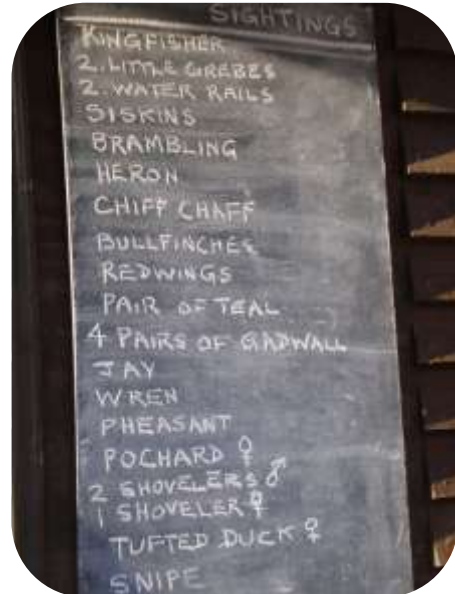 SIGHTINGS
KINGFISHER
2. LITTLE GREBES
2. WATER RAILS
SISKINS
BRAMBLING
HERON
CHIFF CHAFF
BULLFINCHES
REDWINGS
PAIR OF TEAL
4 PAIRS OF GADWALL
JAY
WREN
PHEASANT
POCHARD ♀
2 SHOVELERS ♂
1 SHOVELER ♀
TUFTED DUCK ♀
SNIPE